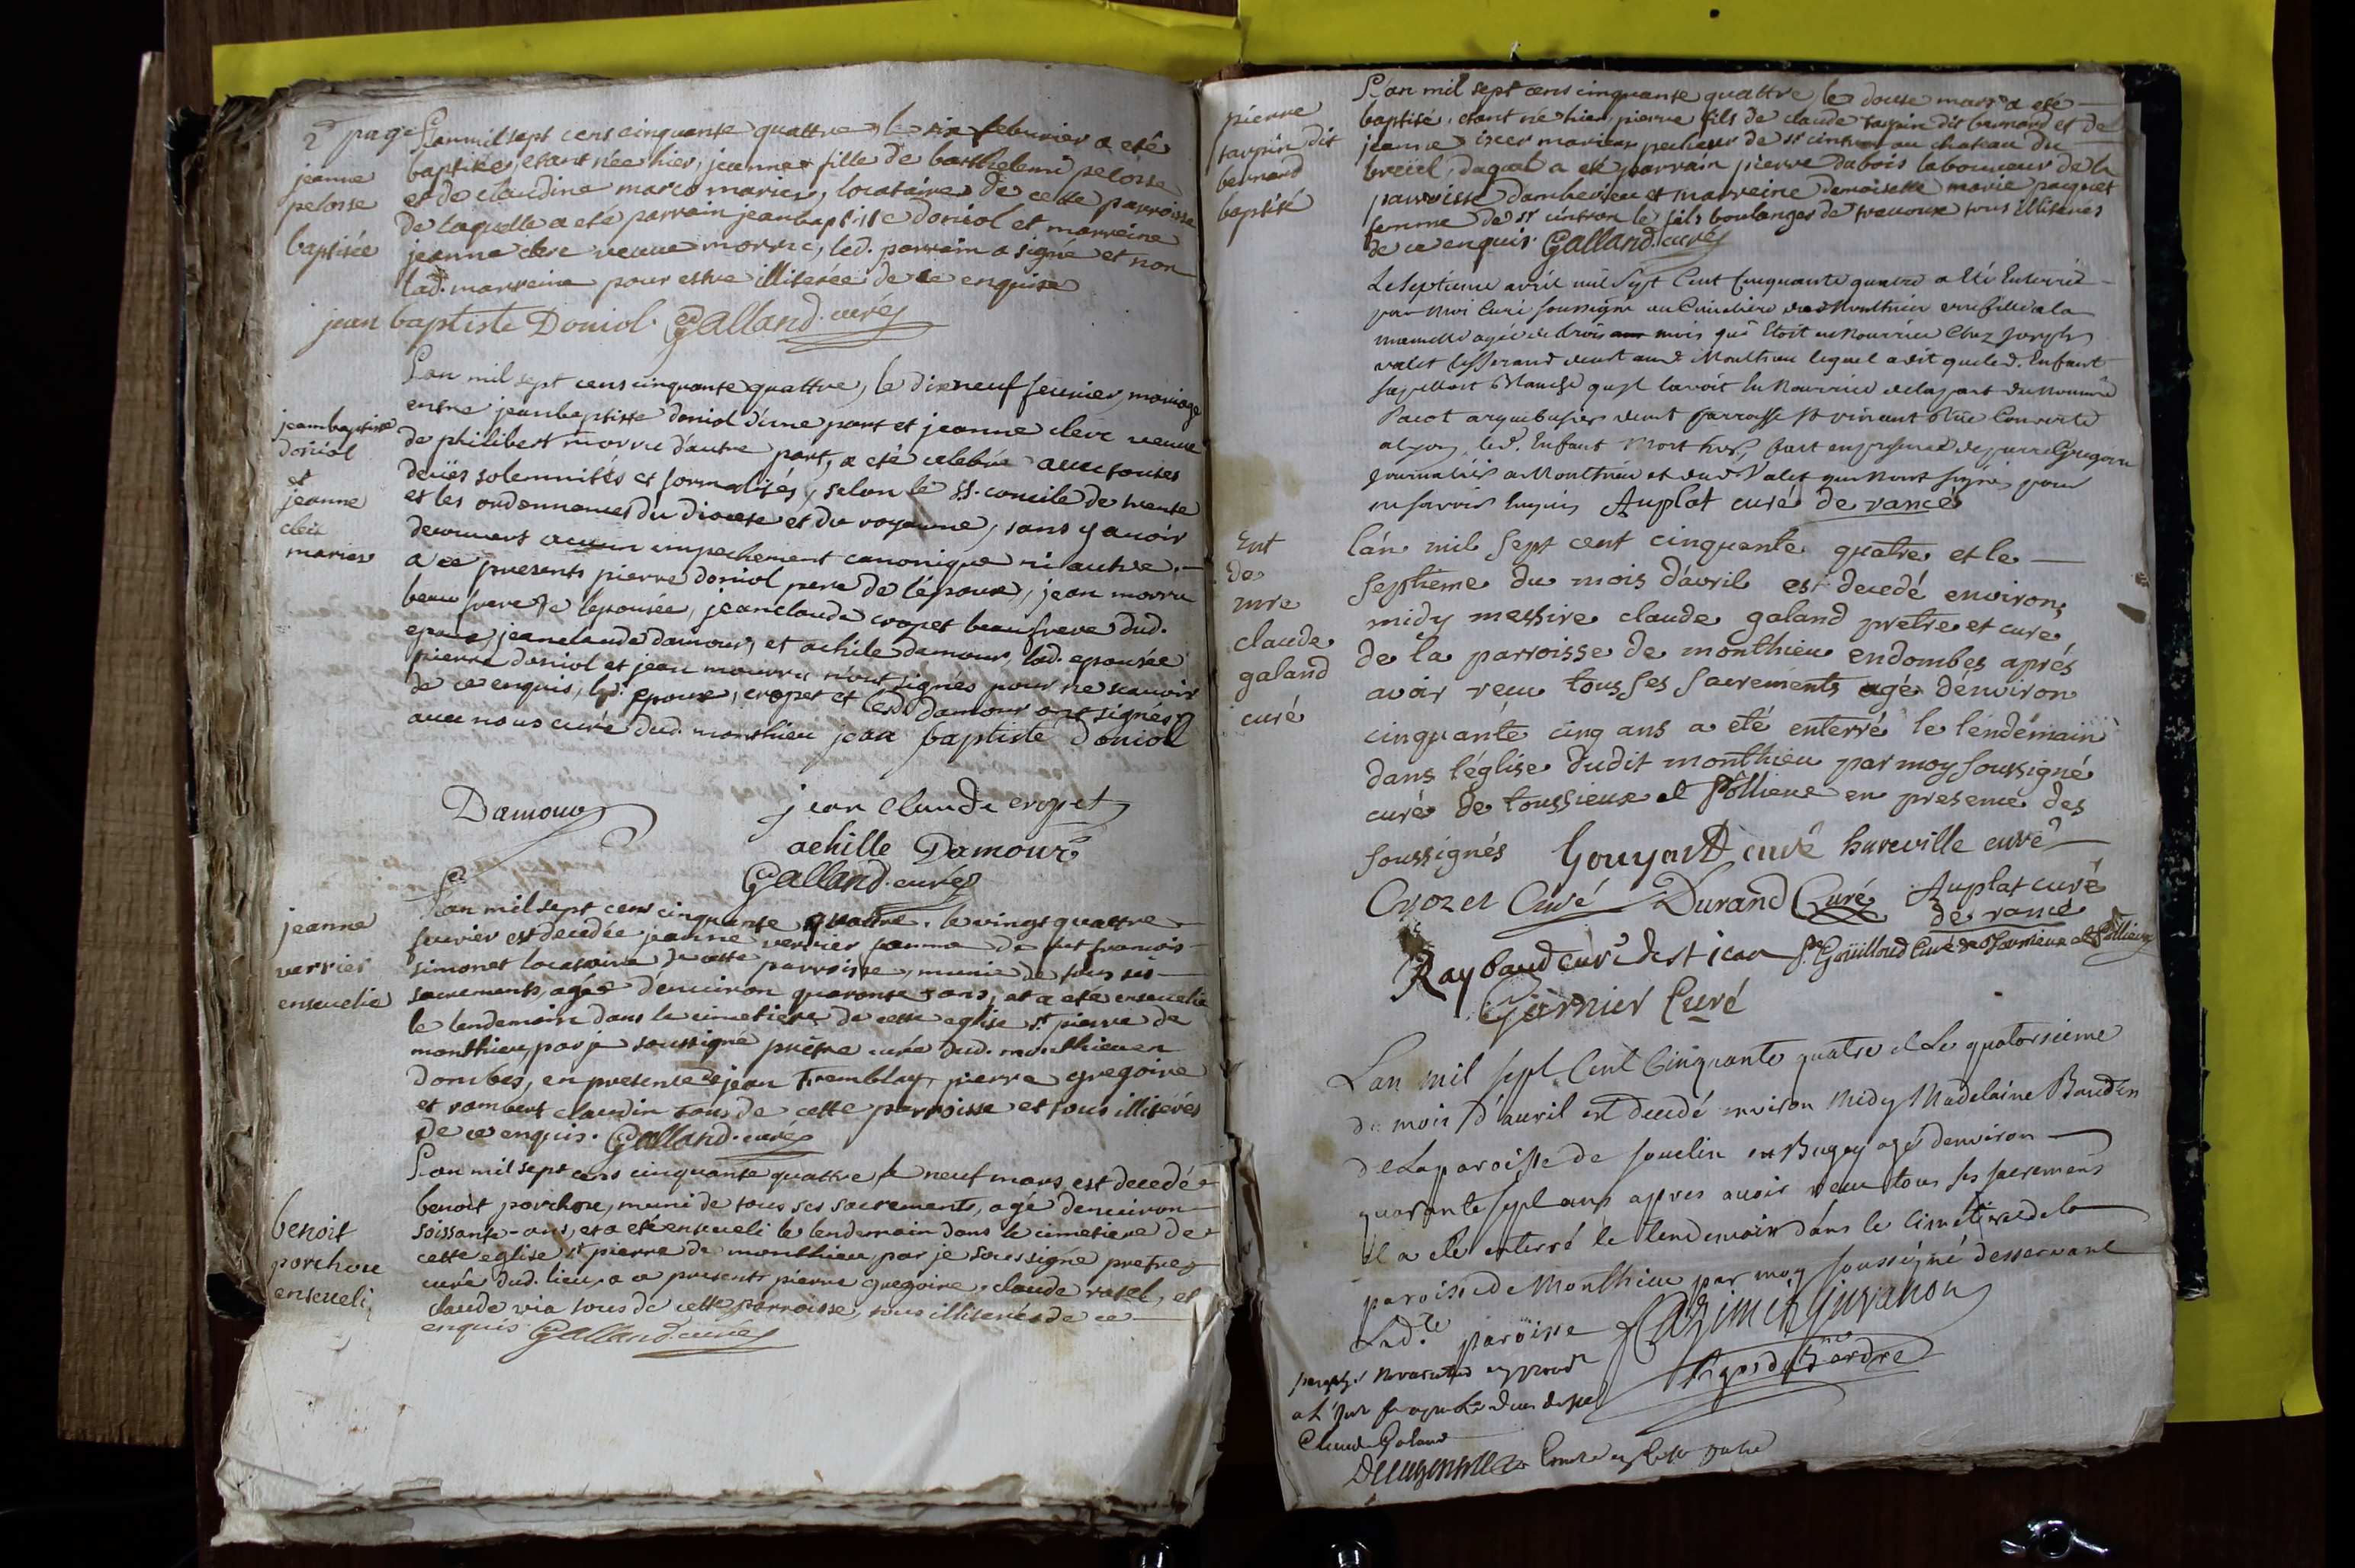 2e page
L'an mil sept cens cinquante quattre, le six februrier a eté
baptisée, etant née hier, jeanne fille de barthelemi pelosse
et de claudine marco mariés, locataires de cette parroisse
de laquelle a eté parrain jean baptiste doniol et marreine
jeanne clere veuve morru, led. parrain a signé et non
lad. marreine pour estre illiterée de ce enquise
jean baptiste Doniol. Galland curé
jeanne
pelosse
baptisée
L'an mil sept cens cinquante quattre, le dixneuf feurier, mariage
entre jeanbaptiste doniol d'une part et jeanne clere veuve
de philibert morru d'autre part, a eté celebré auec toutes
deües solemnités et formalités, selon le st. concile de trente
et les ordonnances du diocese et du royaume, sans y auoir
decouuert aucun empechement canonique ni autre.
a ce presents pierre doniol pere de l'epoux, jean morru
beau frere de l'epousée, jeanclaude cropet beaufrere dud.
epoux, jeanclaude damour, et achile damour, lad. epousée
pierre doniol et jean mourru n'ont signés pour ne scauoir
de ce enquis, led. epoux, cropet et lesd. damour ont signés
auec nous curé dud. monthieu jean baptiste doniol
jeanbaptiste
doniol
et
jeanne
clere
mariés
Damour jean claude cropet
achille Damour
Galland curé
L'an mil sept cens cinquante quattre, le vingt quattre
feurier est decedée jeanne verrier femme de fut francois
simonet locataire de cette parroisse, munie de tous ses
sacrements, agée d'enuiron quarente ans, et a eté enseuelie
le lendemain dans le cimetiere de cette eglise st pierre de
monthieu, par je soussigné prêtre curé dud. monthieu en
dombes, en presence de jean tremblay, pierre gregoire
et rambert claudin tous de cette parroisse et tous illiterés
de ce enquis. Galland curé
jeanne
verrier
enseuelie
L'an mil sept cens cinquante quattre le neuf mars est decedé
benoit porchere, muni de tous ses sacrements, agé d'enuiron
soissante ans, et a eté enseueli le lendemain dans le cimetiere de
cette eglise st pierre de monthieu, par je soussigné pretre
curé dud. lieu, a ce presents pierre gregoire, claude ratel, et
claude via tous de cette parroisse, tous illiterés de ce
enquis Galland curé
benoit
porchere
enseueli
pierre
tarpin dit
bernard
baptisé
L'an mil sept cens cinquante quattre, le douse mars a eté
baptisé, etant né hier, pierre fils de claude tarpin dit bernard et de
jeanne mariés pecheur de sr cintron au chateau du
breüil, duquel a eté parrain pierre dubois laboureur de la
parroisse d'amberieu et marreine demoiselle marie paquet
femme de sr cintron le fils boulanger de treuoux tous illiterés
de ce enquis. Galland curé
Le Septieme avril mil Sept Cent Cinquante quatre a Eté Enterré
par Moi Curé soussigné au Cimetiere de Monthieu une fille a la
mamelle agée de trois mois qui Etoit en Nourrice Chez Joseph
valet tisserand demt aud Monthieu lequel a dit que led. Enfant
sapelloit Blanche qu'il lavoit En Nourrice de la part du nommé
Pacot arquebusier demt parroisse St vincent Rue Couverte
a Lyon, led. Enfant Mort hier, fait en presence de pierre Gregoire
journalier a Monthieu et dud Valet qui N'ont signé pour
ne savoir Enquis Auplat curé de rancé
Ent
de
mre
claude
galand
curé
lán mil sept cent cinquante quatre et le
septieme du mois d'avril est decedé environ
midy messire claude galand pretre et curé
de la parroisse de monthieu en dombes aprés
avoir reçu tous ses sacrements agé dénviron
cinquante cinq ans a eté enterré le lendemain
dans l'église dudit monthieu par moy soussigné
curé de toussieux et Pollieux en presence des
soussignés Gouyard curé hureville curé
Crozet Curé Durand Curé Auplat curé
de rancé
Raybaud curé de st jean Goüilloud Curé de Toussieux et Pollieux
Garnier Curé
L'an mil sept Cent Cinquante quatre et Le quatorsieme
du mois d'auril est decedé environ Midy Madelaine Baudin
de La paroisse de souclin en Bugey agé denviron
quarante sept ans appres auoir reçu tous ses sacremens
il a eté enterré le lendemain dans le Cimetiere de la
paroisse de Monthieu par moy soussigné desservant
Lad.te paroisse